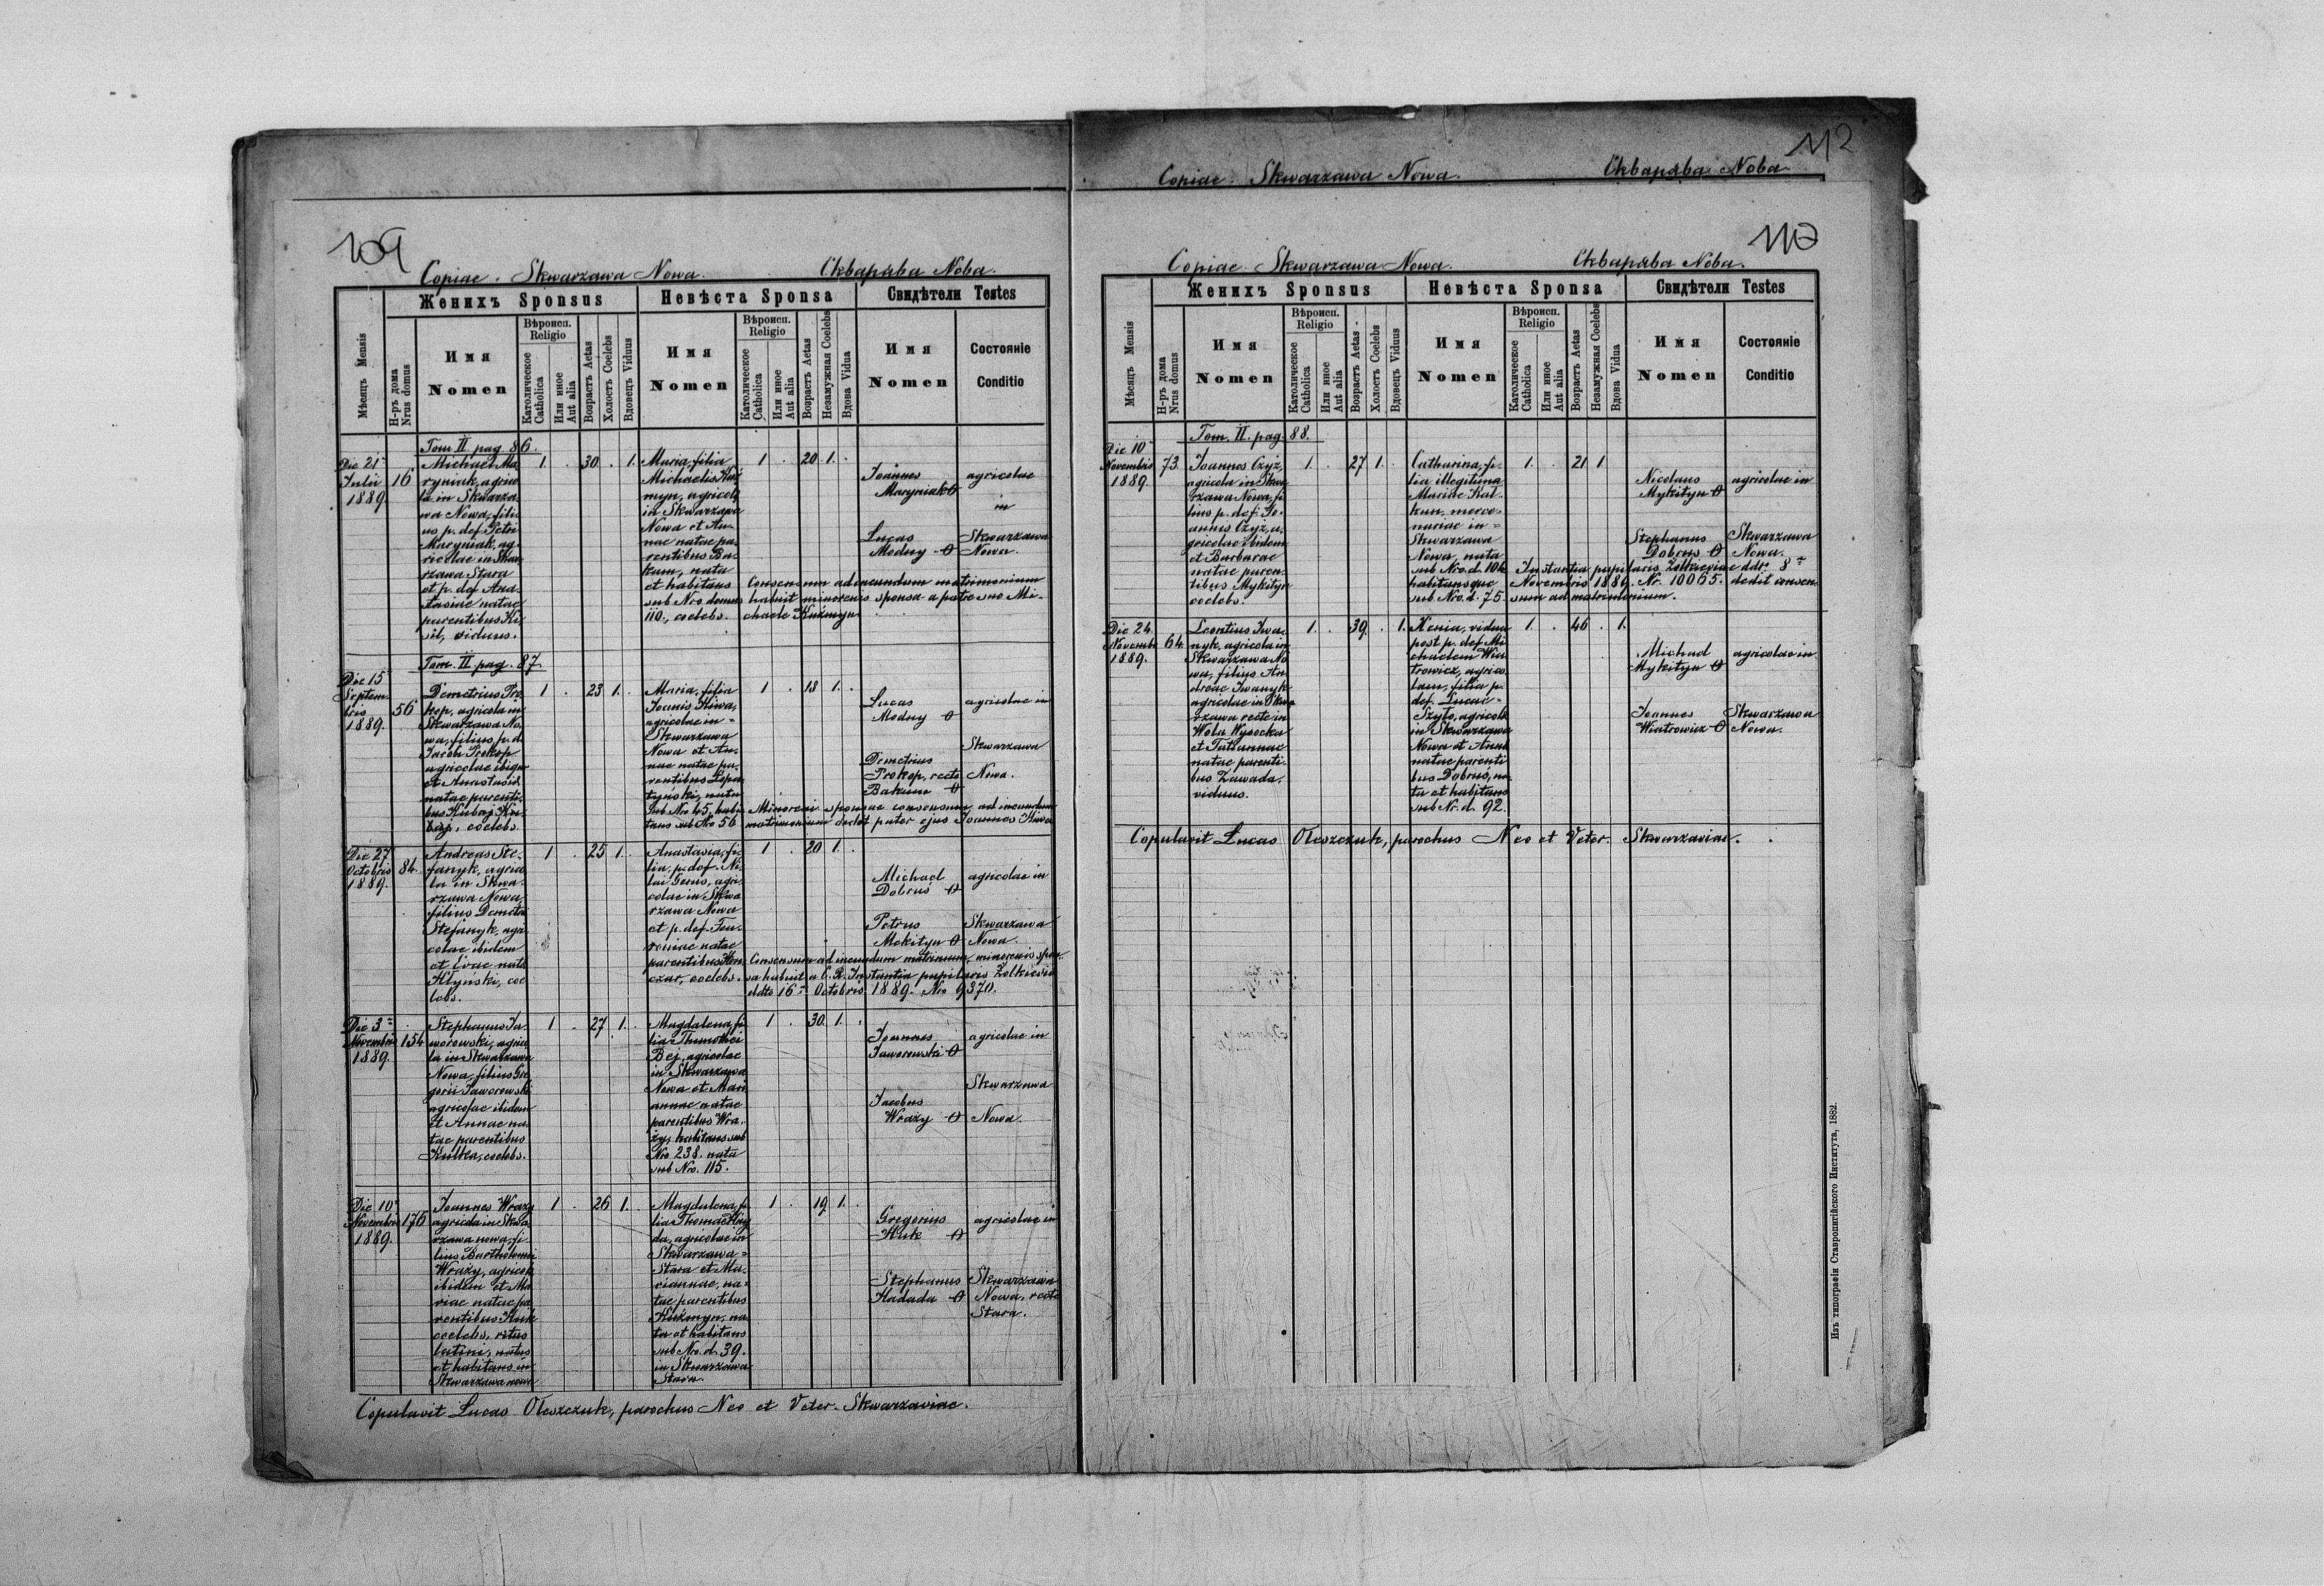 112
Copiae. Skwarzawa Nowa. Скварява Нова.
109
Copiae. Skwarzawa Nowa. Скварява Нова.
Женихъ Sponsus
Невѣста Sponsa
Свидѣтели Testes
Мѣсяцъ Mensis
Н-ръ дома
Nrus domus
Имя
Nomen
Вѣроисп.
Religio
Католическое
Catholica
Или иное
Aut alia
Возрастъ Aetas
Холостъ Coelebs
Вдовецъ Viduus
Имя
Nomen
Вѣроисп.
Religio
Католическое
Catholica
Или иное
Aut alia
Возрастъ Aetas
Незамужная Coelebs
Вдова Vidua
Имя
Nomen
Состояніе
Conditio
Tom II pag 86.
Die 21
Julii
1889
16
Michael Ma
ryniak, agrico
la in Skwarza
wa Nowa, fili
us p. def. Petri
Maryniak, ag
ricolae in Skwa
rzawa Stara
et p. def. Ana
stasiae natae
parentibus Ki
sil, viduus.
1 . 30 . 1.
Maria, filia
Michaelis Kuź
myn, agricol
in Skwarzawa
Nowa et An
nae natae pa
rentibus Ba
kum, nata
et habitans
sub Nro domus
110., coelebs.
1 . 20 1 .
Consensum ad ineundum matrimonium
habuit minorenis sponsa a patre suo Mi
chaele Kuźmyn
Joannes
Maryniak
Lucas
Modny
agricolae
in
Skwarzawa
Nowa.
Tom. II pag. 87
Die 15
Septem
bris
1889.
56
Demetrius Pro
kop, agricola in
Skwarzawa No
wa, filius p. d.
Jacobi Prokop
agricolae ibique
et Anastasiae
natae parenti
bus Kubaj Ku
baj, coelebs.
1 . 23 1.
Maria, filia
Joanis Kiwa,
agricolae in =
Skwarzawa
Nowa et An
nae natae pa
rentibus Lopa
tyński, nata
sub Nro 45, habi
tans sub Nro 56
1 . 18 1 .
Minoreni sponsae consensum ad ineundum
matrimonium dedit pater ejus Joannes Kiwa
Lucas
Modny
Demetrius
Prokop, recte
Bakum
agricolae in
Skwarzawa
Nowa.
Die 27
Octobris
1889.
84.
Andreas Ste
fanyk, agrico
la in Skwa
rzawa Nowa,
filius Demetrii
Stefanyk, agri
colae ibidem
et Evae nata
Hlyński, coe
lebs.
1 . 25 1.
Anastasia, fi
lia p. def. Ni
lai Gerus, agri
colae in Skwa
rzawa Nowa
et p. def. Feu
roniae natae
parentibus Hon
czar, coelebs.
1 . 20 1 .
Consensum ad ineundum matrimum, minorenis spon
sa habuit a C. R. Instantia pupilaris Zolkiesia
ddto 16 Octobris 1889. Nro 9370.
Michael
Dobruś
Petrus
Mekityn
agricolae in
Skwarzawa
Nowa.
Die 3
Novembris
1889.
154
Stephanus Ja
worowski, agrico
la in Skwarzawa
Nowa, filius Gre
gorii Jaworowski
agricolae ibidem
et Annae na
tae parentibus
Kulka, coelebs.
1 . 27 1.
Magdalena, fi
lia Thimothei
Bej, agricolae
in Skwarzawa
Nowa et Mari
annae natae
parentibus Wra
ży, habitans sub
Nro 238. nata
sub Nro. 115.
1 . 30 1 .
Joannes
Jaworowski
Jacobus
Wraży
agricolae in
Skwarzawa
Nowa.
Die 10
Novembris
1889.
176
Joannes Wraży
agricola in Skwa
rzawa nowa, fi
lius Bartholomei
Wraży, agricol
ibidem et Ma
riae natae pa
rentibus Huk
coelebs, ritus
latini, natus
et habitans in
Skwarzawa nowa
1 . 26 1.
Magdalena, fi
lia Thomae
da, agricolae in
Skwarzawa =
Stara et Ma
riannae, na=
tae parentibus
Kuźmyn, na
ta et habitans
sub Nro. d. 39.
in Skwarzawa
Stara
1 . 19 1 .
Gregorius
Huk
Stephanus
Hadada
agricolae in
Skwarzawa
Nowa, recte
Stara.
Copulavit Lucas Oleszczuk, parochus Neo et Veter. Skwarzaviae.
110
Copiae Skwarzawa Nowa. Скварява Нова.
Женихъ Sponsus
Невѣста Sponsa
Свидѣтели Testes
Мѣсяцъ Mensis
Н-ръ дома
Nrus domus
Имя
Nomen
Вѣроисп.
Religio
Католическое
Catholica
Или иное
Aut alia
Возрастъ Aetas
Холостъ Coelebs
Вдовецъ Viduus
Имя
Nomen
Вѣроисп.
Religio
Католическое
Catholica
Или иное
Aut alia
Возрастъ Aetas
Незамужная Coelebs
Вдова Vidua
Имя
Nomen
Состояніе
Conditio
Tom. II. pag. 88.
Die 10
Novembris
1889.
73.
Joannes Czyż,
agricola in Skwa
rzawa Nowa, fi
lius p. def. Jo
annis Czyż, a
gricolae ibidem
et Barbarae
natae paren
tibus Mykityn
coelebs.
1. . 27 1.
Catharina, fi
lia illegitima
Mariae Kal
kun, merce
nariae in =
Skwarzawa
Nowa, nata
sub Nro. d. 104
habitansque
sub. Nro. d. 75.
1. . 21 1
Instantia pupilaris Zolkieviae ddto 8
Novembris 1889. Nr. 10065. dedit consen
sum ad matrimonium.
Nicolaus
Mykityn
Stephanus
Dobrus
agricolae in
Skwarzawa
Nowa.
Die 24.
Novembr
1889.
64.
Leontius Iwa
nyk, agricola in
Skwarzawa No
wa, filius An
dreae Iwanyk
agricolae in Skwa
rzawa recte in
Wola Wysocka
et Tatiannae
natae parenti
bus Zawada,
viduus.
1. . 39. . 1.
Xenia, vidua
post p. def. Mi
chaelem Wia
trowicz, agrico
lam, filia p.
def. Lucae =
Tzyło, agricola
in Skwarzawa
Nowa et Anna
natae parenti
bus Dobruś, na
ta et habitans
sub Nr. d. 92.
1. . 46 . 1.
Michael
Mykityn
Joannes
Wiatrowicz
agricolae in
Skwarzawa
Nowa.
Copulavit Lucas Oleszczuk, parochus Neo et Veter. Skwarzaviae.
Изъ типографіи Ставропигійского Института, 1882.